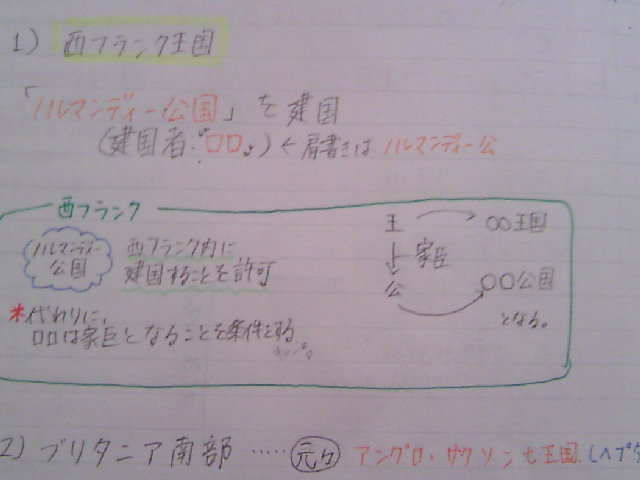 1) 西フランク王国
「ノルマンディー公国」を建国
(建国者:"ロロ") ← 肩書きは ノルマンディー公
西フランク
ノルマンディー公国
西フランク内に
建国することを許可
*代わりに、
ロロは家臣となることを条件とする
王 → ○○王国
↓ 家臣
公 → ○○公国
となる。
2) ブリタニア南部 ‥‥‥ 元々 アングロ・サクソン七王国.(ヘプタ